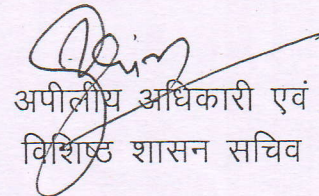 अपीलीय अधिकारी एवं
विशिष्ट शासन सचिव